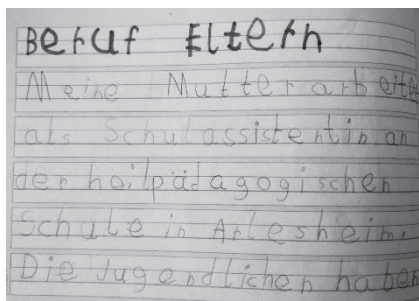 Beruf Eltern
Meine Mutter arbeitet
als Schulassistentin an
der heilpädagogischen
Schule in Arlesheim.
Die Jugendlichen haben